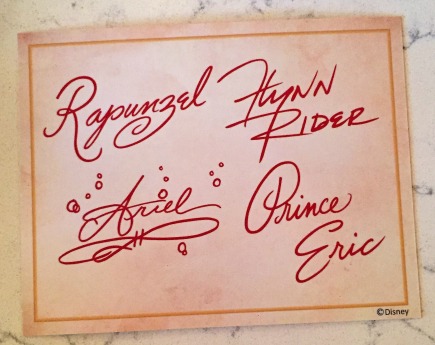 Rapunzel
FLYNN
RIDER
Ariel
Prince
Eric
©Disney